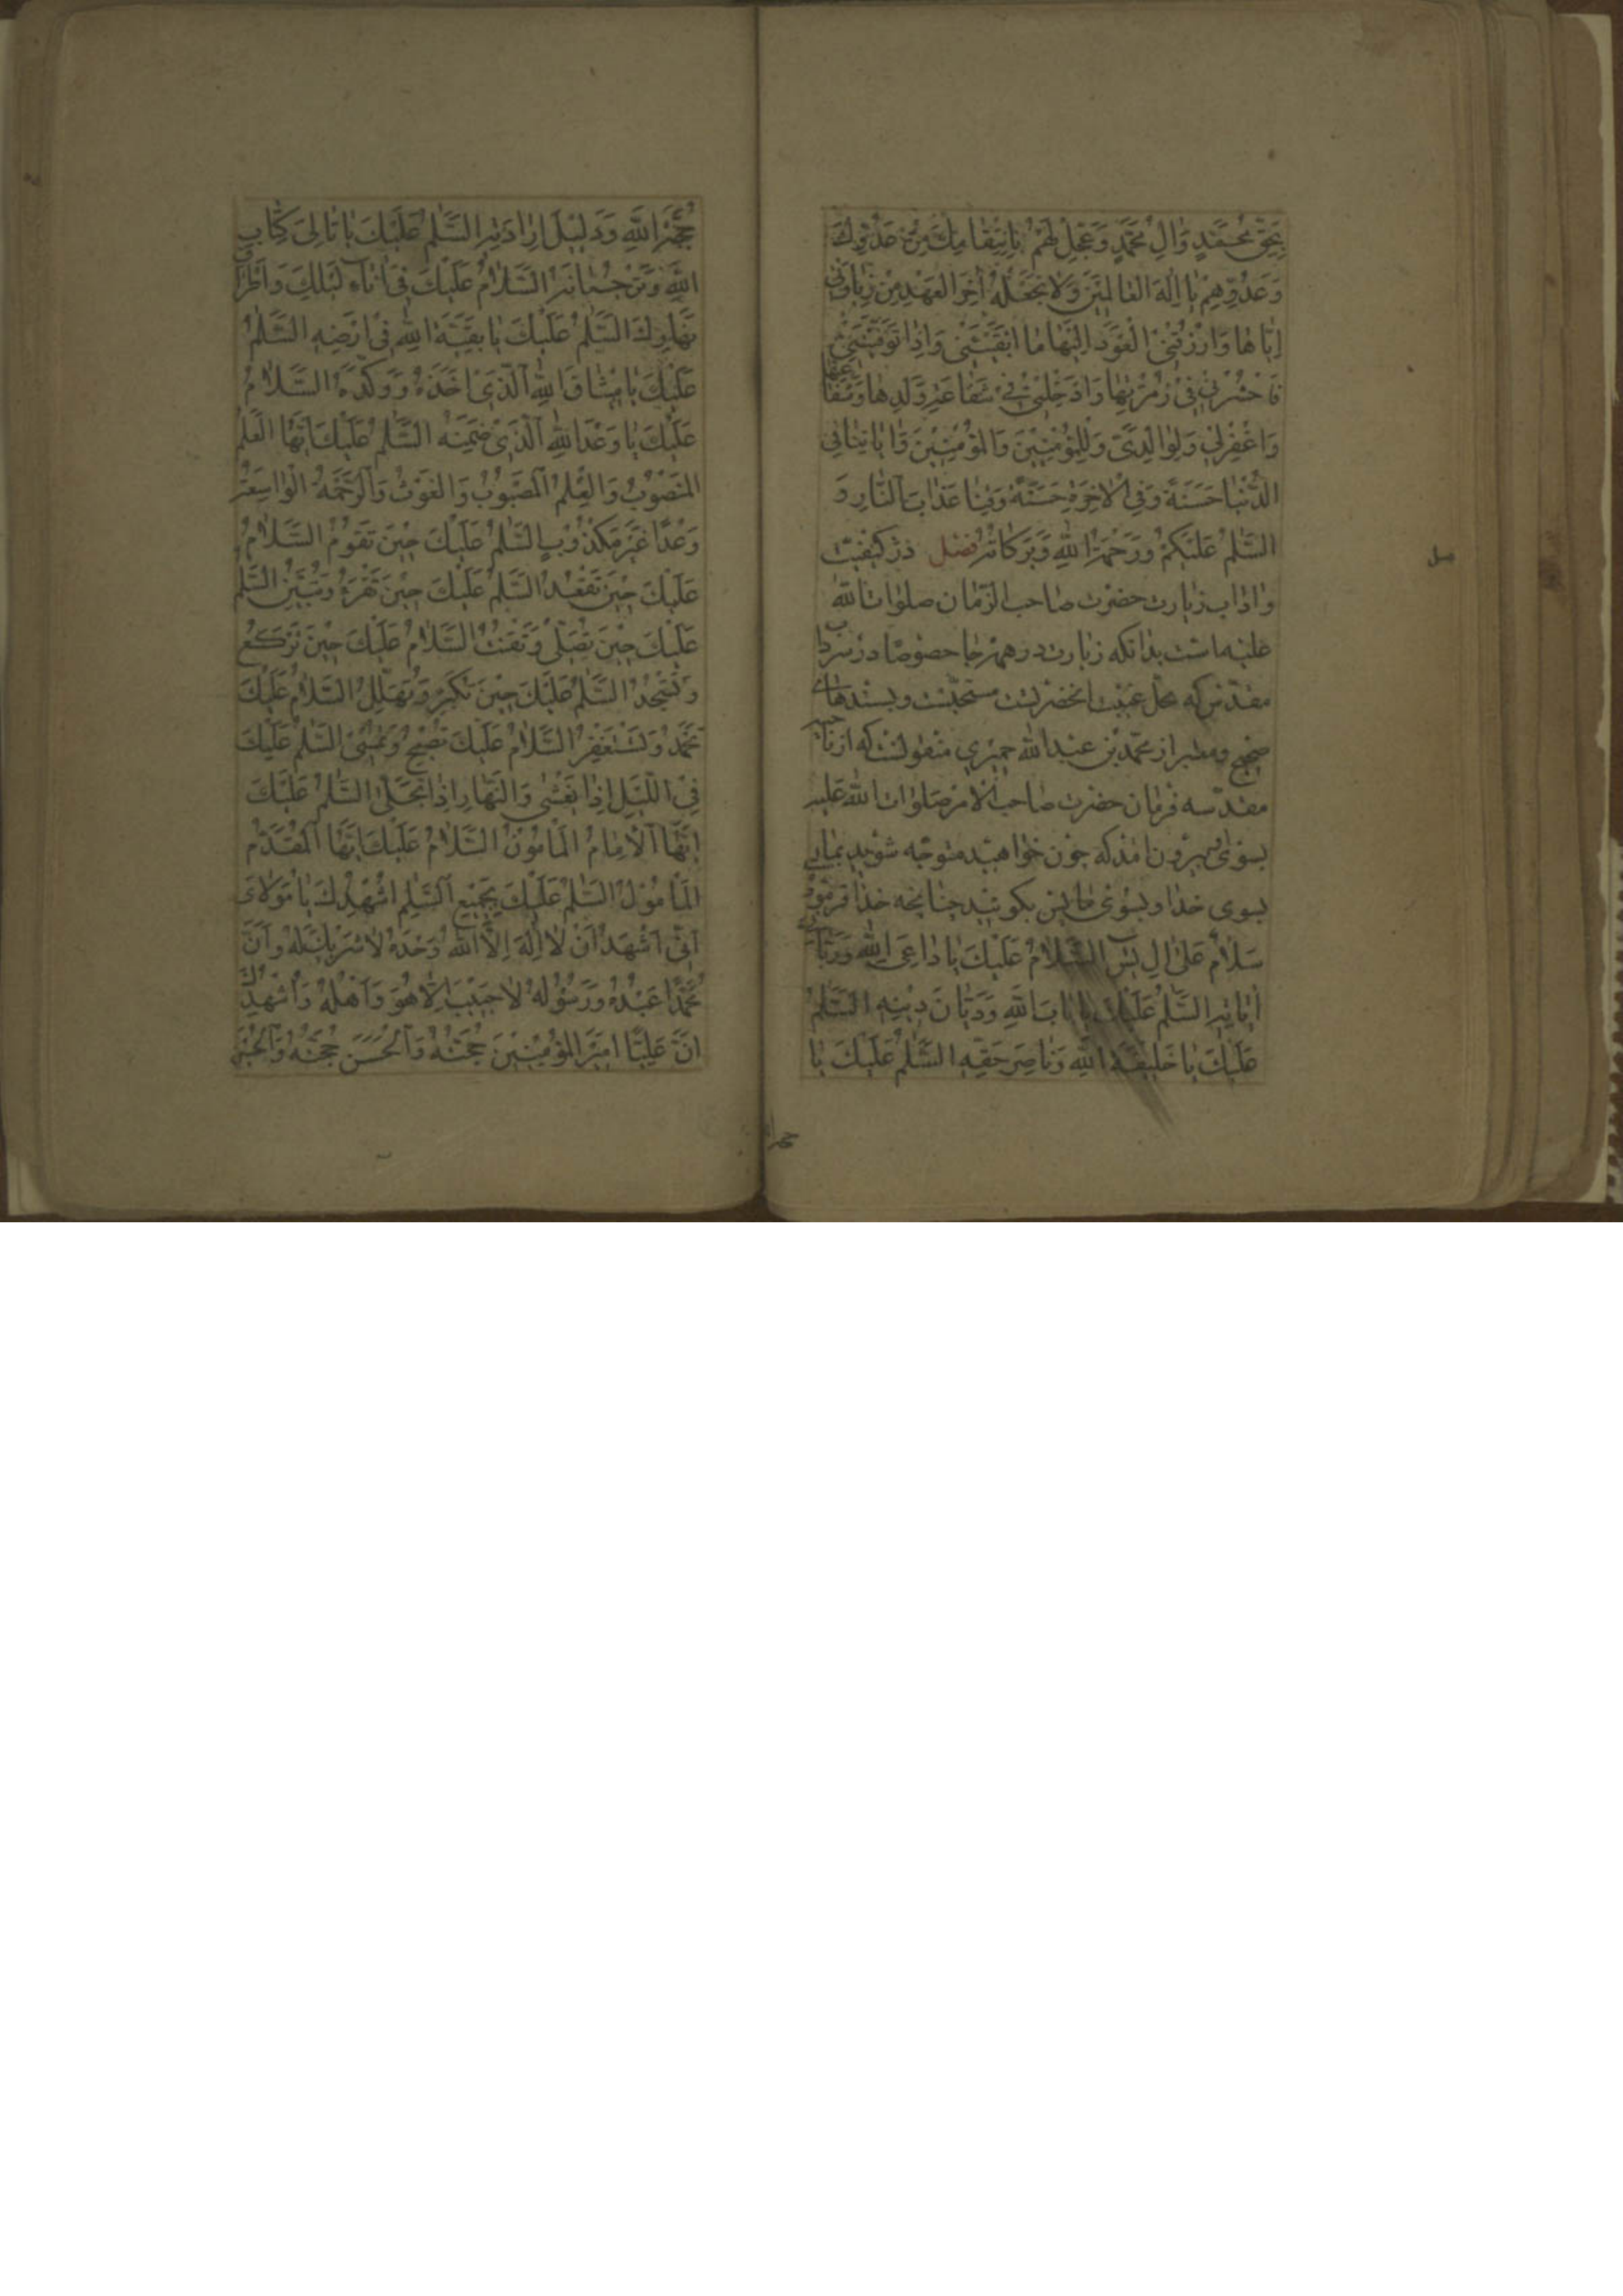 بِحَقِّ مُحَمَّدٍ وَآلِ مُحَمَّدٍ وَعَجِّلْ لَهُمْ بِانْتِقَامِكَ مِنْ عَدُوِّكَ
وَعَدُوِّهِمْ يَا اِلٰهَ الْعَالَمِيْنَ وَلَا تَجْعَلْهُ اٰخِرَ الْعَهْدِ مِنْ زِيَارَتِي
اِيَّاهَا وَارْزُقْنِي الْعَوْدَ اِلَيْهَا مَا اَبْقَيْتَنِي وَاِذَا تَوَفَّيْتَنِي
فَاحْشُرْنِي فِي زُمْرَتِهَا وَاَدْخِلْنِي فِي شَفَاعَةِ وَلَدِهَا وَشَفَاعَتِهَا
وَاغْفِرْلِي وَلِوَالِدَيَّ وَلِلْمُؤْمِنِيْنَ وَالْمُؤْمِنِيْنَ وَ اٰتِنَا فِي
الدُّنْيَا حَسَنَةً وَفِي الْاٰخِرَةِ حَسَنَةً وَقِنَا عَذَابَ النَّارِ وَ
السَّلٰمُ عَلَيْكُمْ وَرَحْمَةُ اللهِ وَبَرَكَاتُهُ فصل در کیفیت
واداب زیارت حضرت صاحب الزمان صلوات الله
علیه است بدانکه زیارت در همه جا خصوصا در سرداب
مقدس که محل غیبت انحضرتست مستحبست و بسندهای
صحیح و معتبر از محمد بن عبدالله حمیری منقولست که از ناحیه
مقدسه فرمان حضرت صاحب الامر صلوات الله علیه
بسوی من بیرون امد که چون خواهید متوجه شوید بما
بسوی خدا و بسوی ما پس بکوئید چنانچه خدا فرموده
سَلَامٌ عَلٰى اٰلِ يٰسٓ السَّلَامُ عَلَيْكَ يَا دَاعِيَ اللهِ وَرَبَّانِيَّ
اٰيَاتِهِ السَّلٰمُ عَلَيْكَ يَا بَابَ اللهِ وَدَيَّانَ دِيْنِهِ السَّلٰمُ
عَلَيْكَ يَا خَلِيْفَةَ اللهِ وَنَاصِرَ حَقِّهِ السَّلٰمُ عَلَيْكَ يَا
حُجَّةَ اللهِ وَدَلِيْلَ اِرَادَتِهِ السَّلٰمُ عَلَيْكَ يَا تَالِيَ كِتَابِ
اللهِ وَتَرْجُمَانَهُ السَّلَامُ عَلَيْكَ فِي اٰنَاءِ لَيْلِكَ وَاَطْرَافِ
نَهَارِكَ السَّلٰمُ عَلَيْكَ يَا بَقِيَّةَ اللهِ فِي اَرْضِهِ السَّلٰمُ
عَلَيْكَ يَا مِيْثَاقَ اللهِ الَّذِي اَخَذَهُ وَوَكَّدَهُ السَّلَامُ
عَلَيْكَ يَا وَعْدَ اللهِ الَّذِي ضَمِنَهُ السَّلٰمُ عَلَيْكَ اَيُّهَا الْعَلَمُ
الْمَنْصُوْبُ وَالْعِلْمُ الْمَصْبُوْبُ وَالْغَوْثُ وَالرَّحْمَةُ الْوَاسِعَةُ
وَعْدًا غَيْرَ مَكْذُوْبٍ السَّلٰمُ عَلَيْكَ حِيْنَ تَقُوْمُ السَّلَامُ
عَلَيْكَ حِيْنَ تَقْعُدُ السَّلٰمُ عَلَيْكَ حِيْنَ تَقْرَءُ وَتُبَيِّنُ السَّلٰمُ
عَلَيْكَ حِيْنَ تُصَلِّي وَتَقْنُتُ السَّلَامُ عَلَيْكَ حِيْنَ تَرْكَعُ
وَتَسْجُدُ السَّلٰمُ عَلَيْكَ حِيْنَ تُكَبِّرُ وَتُهَلِّلُ السَّلَامُ عَلَيْكَ
تَحْمَدُ وَتَسْتَغْفِرُ السَّلَامُ عَلَيْكَ تُصْبِحُ وَتُمْسِي السَّلٰمُ عَلَيْكَ
فِي اللَّيْلِ اِذَا يَغْشٰى وَالنَّهَارِ اِذَا تَجَلّٰى السَّلٰمُ عَلَيْكَ
اَيُّهَا الْاِمَامُ الْمَأْمُوْنُ السَّلَامُ عَلَيْكَ اَيُّهَا الْمُقَدَّمُ
الْمَأْمُوْلُ السَّلٰمُ عَلَيْكَ بِجَمِيْعِ السَّلٰمِ اُشْهِدُكَ يَا مَوْلَايَ
اَنِّي اَشْهَدُ اَنْ لَا اِلٰهَ اِلَّا اللهُ وَحْدَهُ لَا شَرِيْكَ لَهُ وَاَنَّ
مُحَمَّدًا عَبْدُهُ وَرَسُوْلُهُ لَا حَبِيْبَ اِلَّا هُوَ وَاَهْلُهُ وَاُشْهِدُكَ
اَنَّ عَلِيًّا اَمِيْرَ الْمُؤْمِنِيْنَ حُجَّتُهُ وَالْحَسَنَ حُجَّتُهُ وَالْحُسَيْنَ